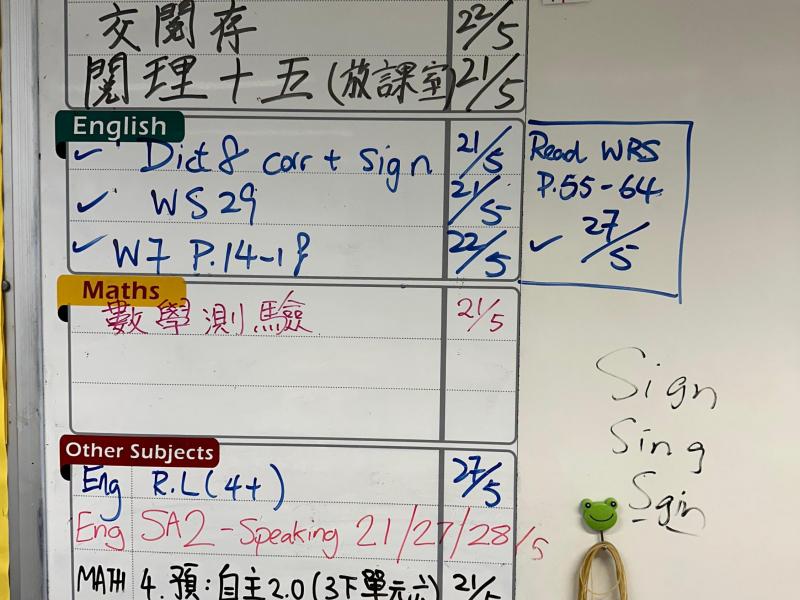 交閱存 22/5
閱理十五(放課室) 21/5
English
✓ Dict 8 corr + sign 21/5
✓ WS 29 21/5
✓ W7 P.14-18 22/5
Read WRS
P.55-64
✓ 27/5
Maths
數學測驗 21/5
Sign
Sing
Sgin
Other Subjects
Eng R.L(4+) 27/5
Eng SA2-Speaking 21/27/28/5
MATH 4.預:自主2.0(3下單元六) 21/5